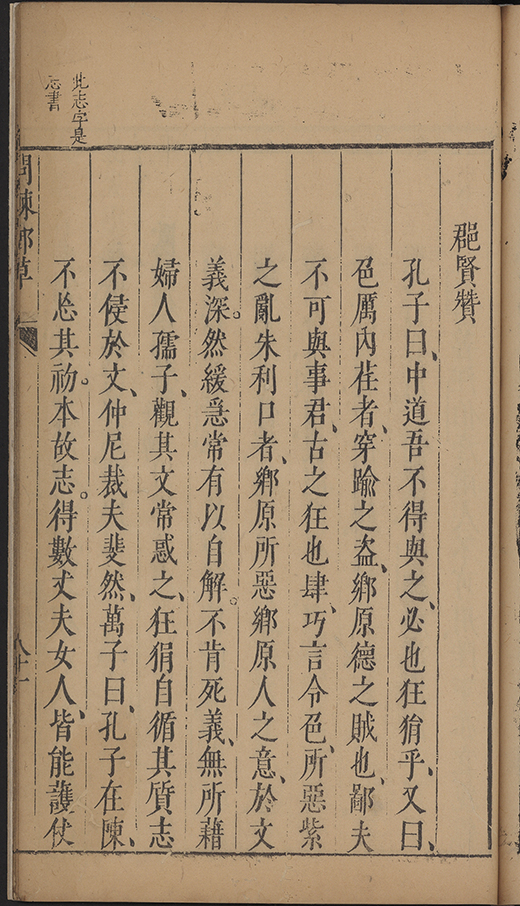 郡賢贊
孔子曰、中道吾不得與之、必也狂狷乎、又曰、
色厲內荏者、穿踰之盜、鄉原德之賊也、鄙夫
不可與事君、古之狂也肆、巧言令色、所惡紫
之亂朱利口者、鄉原所惡鄉原人之意、於文
義深。然緩急常有以自解。不肯死義、無所藉
婦人孺子、觀其文常惑之、狂狷自循其質志
不侵於文、仲尼裁夫斐然、萬子曰、孔子在陳、
不忘其初。本故志。得數丈夫女人、皆能護使
此志字是
志書
問棘郵草
八十一